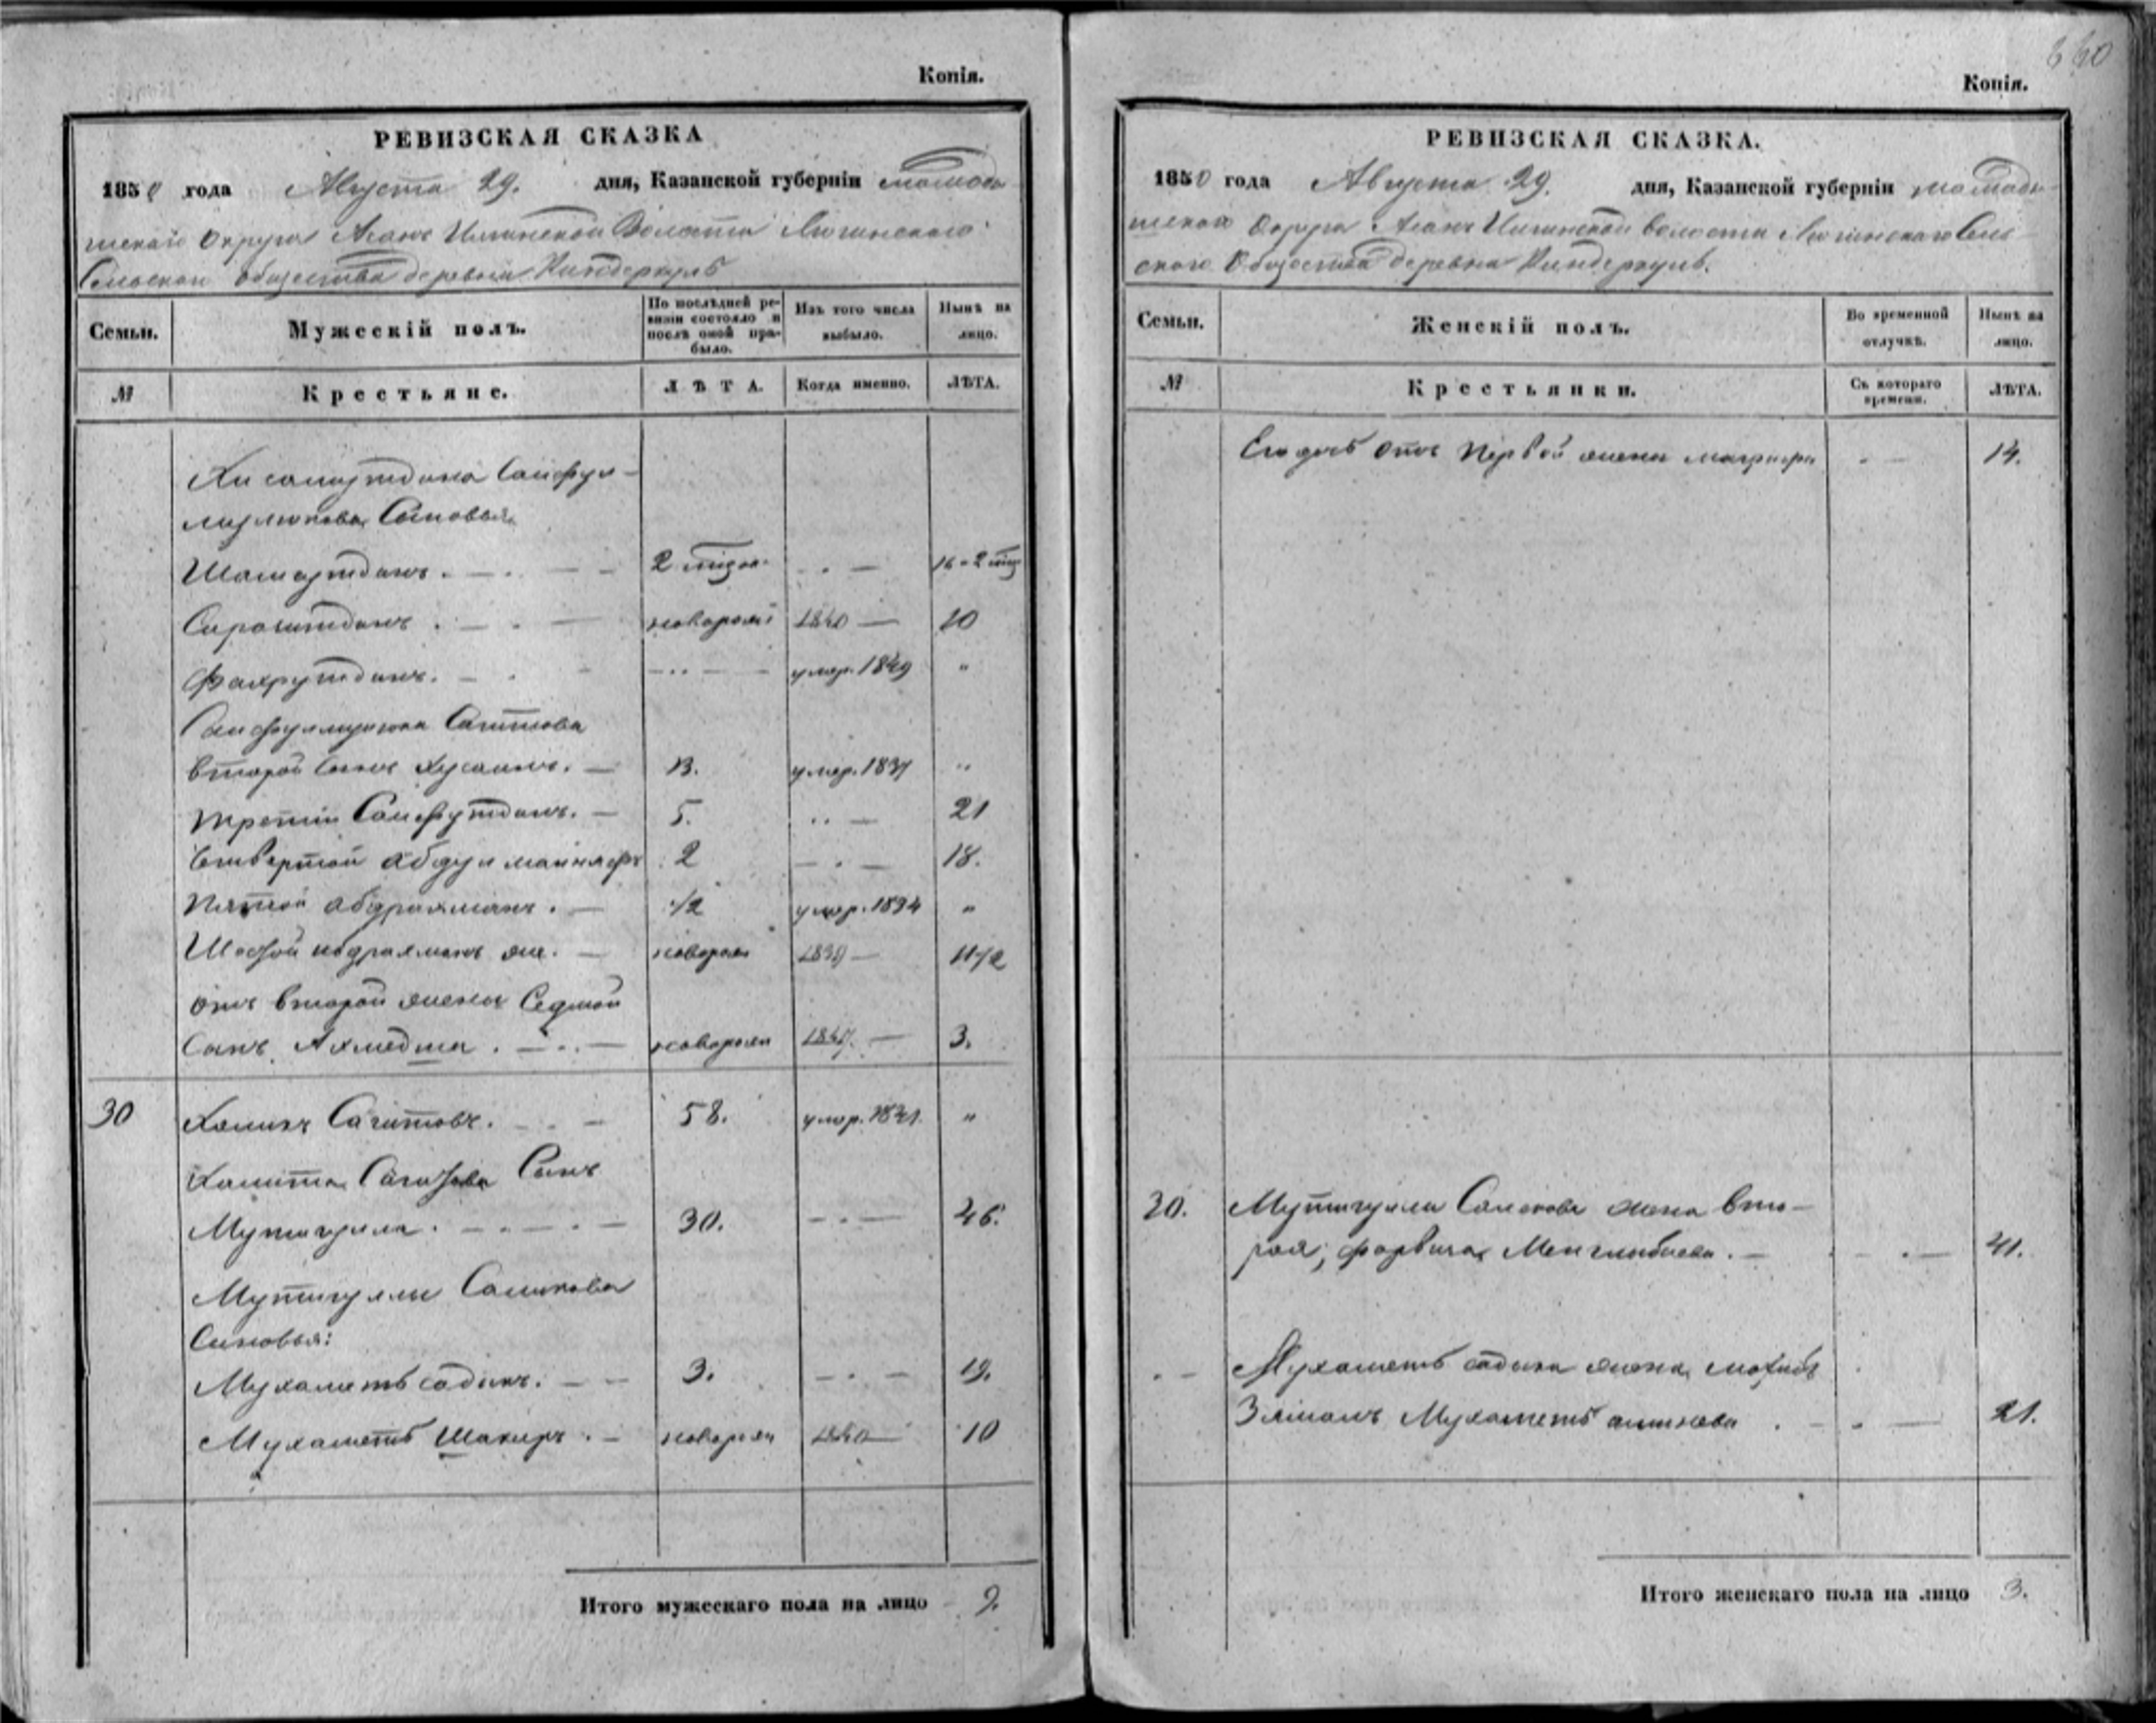 660
Копія.
РЕВИЗСКАЯ СКАЗКА
1850 года Августа 29. дня, Казанской губерніи Мамады-
шскаго Округа Асанъ Илгинской Волости
Сельскаго общества деревни Киндеркуль
Семьи.
Мужескій полъ.
По послѣдней ре-
визіи состояло и
послѣ оной при-
было.
Изъ того числа
выбыло.
Нынѣ на
лицо.
№
Крестьяне.
ЛѢТА.
Когда именно.
ЛѢТА.
Хисамутдина Сайфул-
мулюкова Сыновья
Шамсутдинъ. 2 16-2
Сиразитдинъ. новорож 1840 10
Фахрутдинъ. умер. 1849 "
Сайфулмулюка Сагитова
второй сынъ Хусаинъ. 13. умер. 1837 "
третій Сайфутдинъ. 5. 21
Четвертой Абдул 2 18.
Пятой Абдрахманъ. 1/2 умер. 1834 "
Шестой Абдрахманъ же. новорож 1839 11 1/2
отъ второй жены Седмой
Сынъ Ахмедша. новорож 1847. 3.
30 Халитъ Сагитовъ. 58. умер. 1841. "
Халита Сагитова Сынъ
Мутигулла. 30. 46.
Мутигуллы Салихова
Сыновья:
Мухаметь садикъ. 3. 19.
Мухаметь Шакиръ. новорож 1840 10
Итого мужескаго пола на лицо 9.
Копія.
РЕВИЗСКАЯ СКАЗКА.
1850 года Августа 29. дня, Казанской губерніи Мамады-
шскаго Округа Асанъ Илгинской волости Сель-
скаго Общества деревни Киндеркуль.
Семьи.
Женскій полъ.
Во временной
отлучкѣ.
Нынѣ на
лицо.
№
Крестьянки.
Съ котораго
времени.
ЛѢТА.
Его дочь отъ первой жены 14.
30. Мутигуллы жена вто-
рая, 41.
Мухаметь садика жена
Зяманъ 21.
Итого женскаго пола на лицо 3.